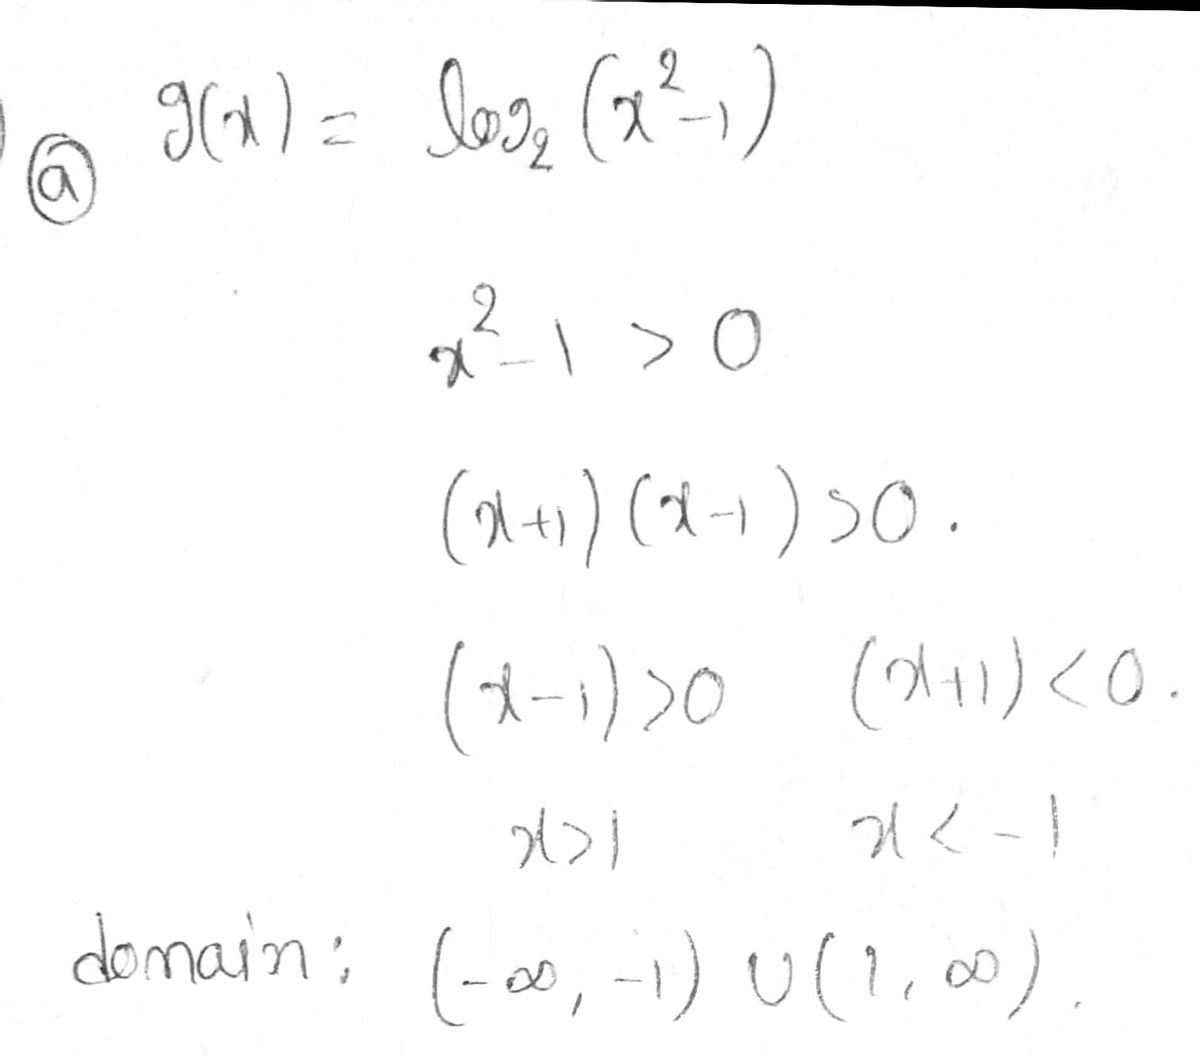 ⓐ g(x) = log₂ (x²-1)
x²-1 > 0
(x+1) (x-1) >0.
(x-1) >0 (x+1) <0.
x>1 x < -1
domain: (-∞, -1) ∪ (1, ∞).